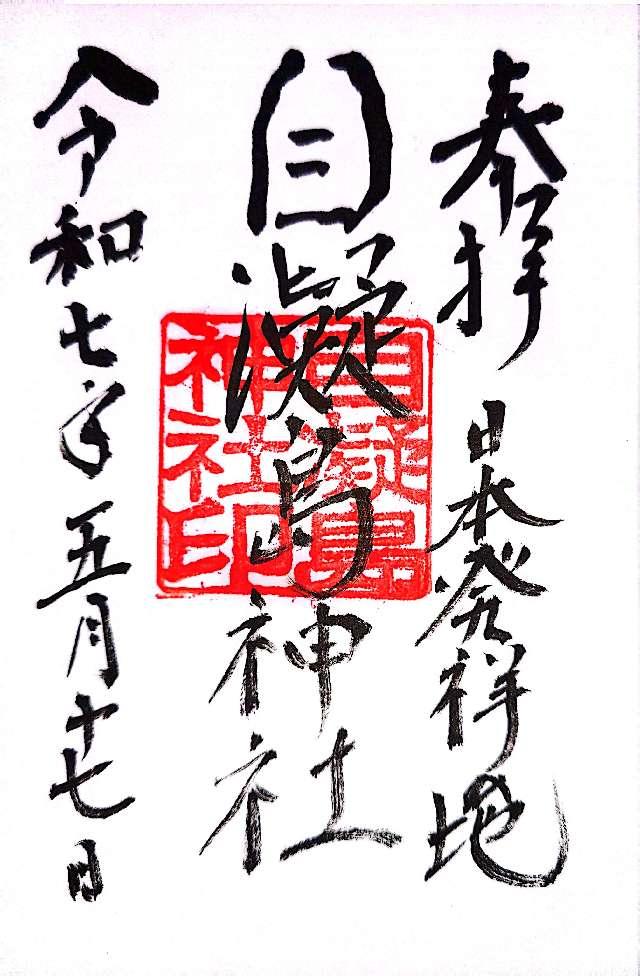 奉拝 日本発祥地
自凝島神社
自凝島
神社印
令和七年五月十七日